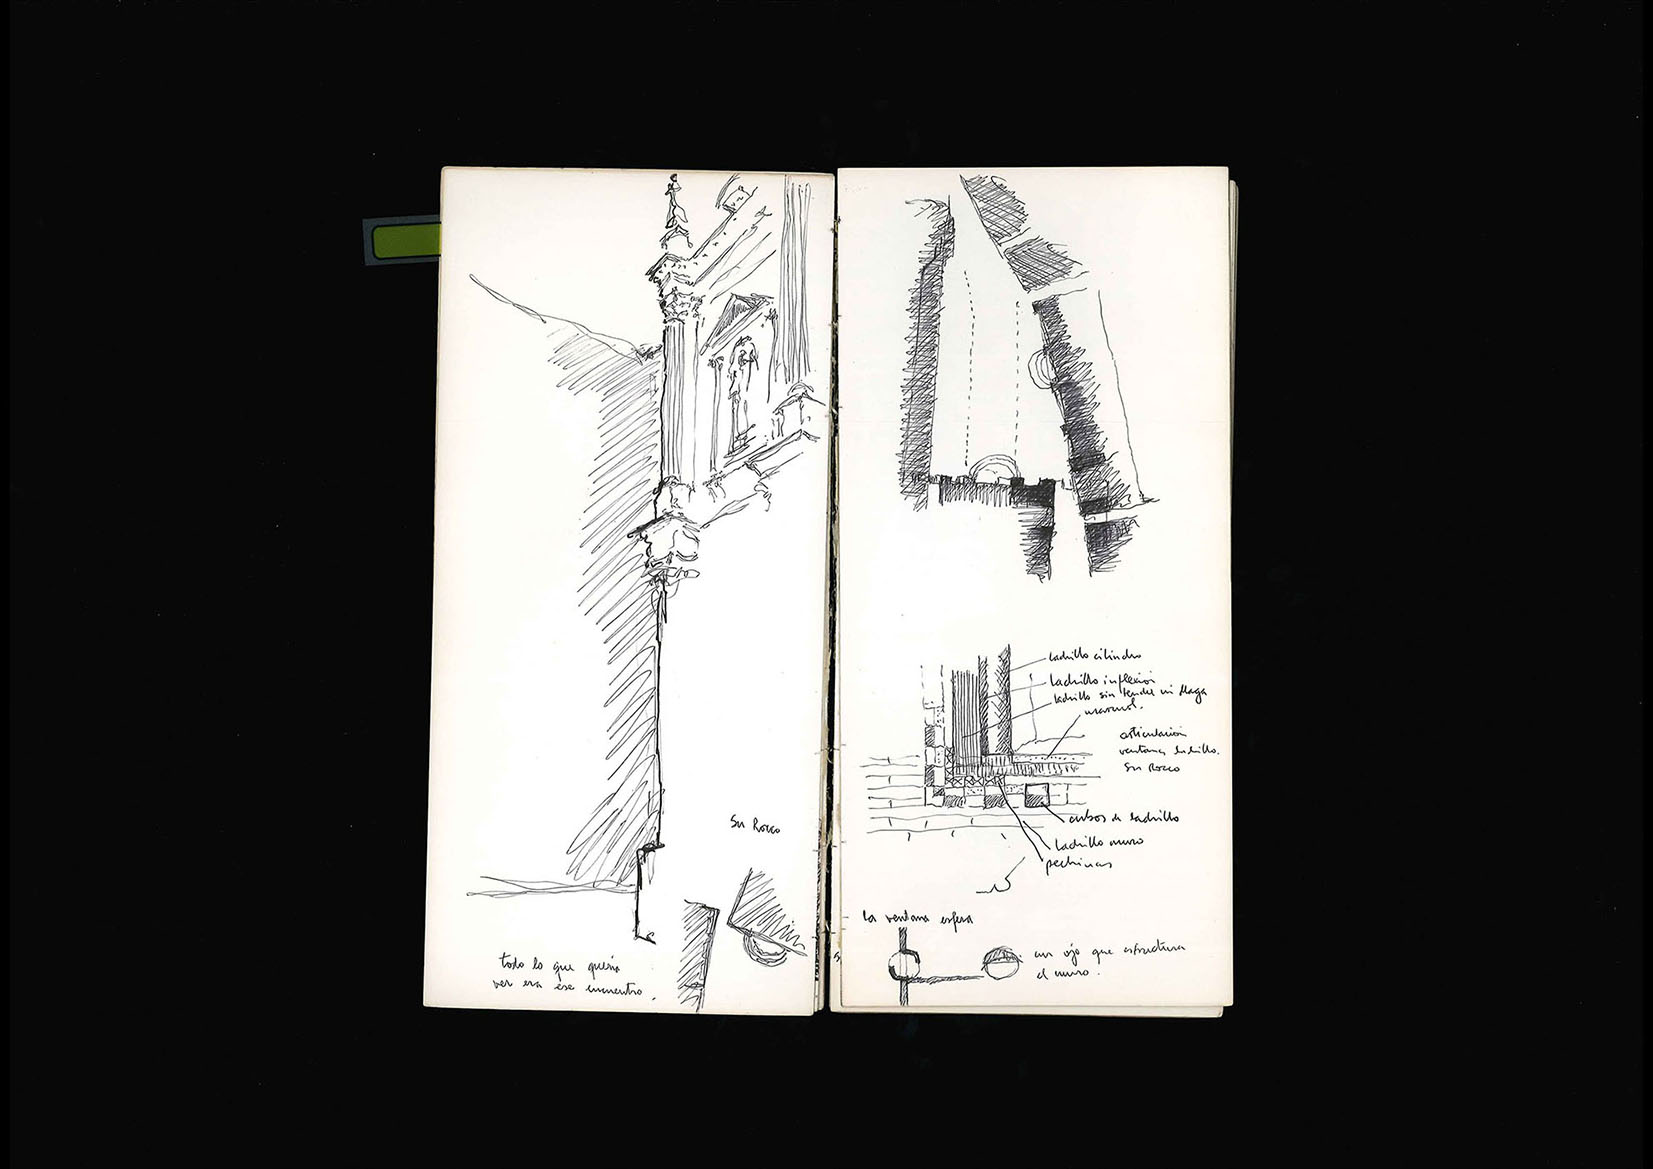 Sn Rocco
todo lo que quería
ver era ese encuentro.
ladrillo cilindro
ladrillo inflexión
ladrillo sin tendel ni llaga
marmol.
articulación
ventana ladrillo.
Sn Rocco
cubos de ladrillo
ladrillo muro
pechinas
la ventana esfera
un ojo que estructura
el muro.